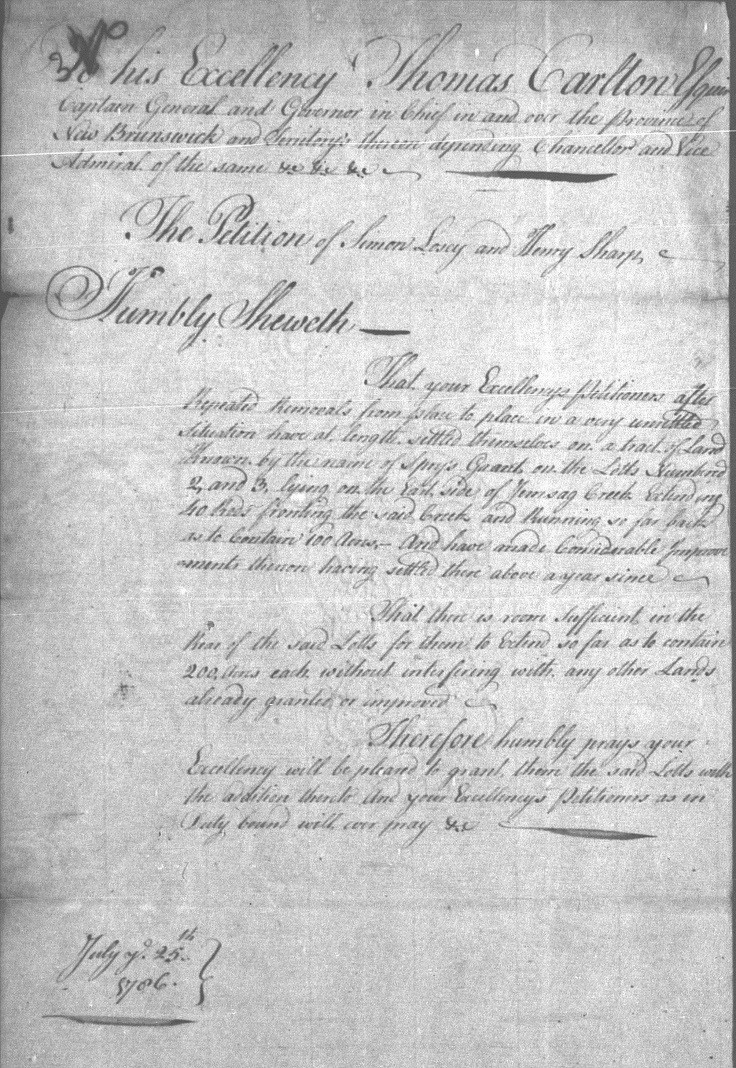 No
To his Excellency Thomas Carlton Esquire
Captain General and Governor in Chief in and over the Province of
New Brunswick and Territory's therein depending Chancellor and Vice
Admiral of the same &c &c &c
The Petition of Simon Losey and Henry Sharp,
Humbly Sheweth
That your Excellencys Petitioners after
Repeated Removals from place to place in a very unsettled
Situation have at length settled themselves on a tract of Land
Known by the name of Spry's Grant on the Lotts Numbered
2, and 3, lying on the East side of Jemsag Creek Extending
40 Rods fronting the said Creek and Running so far back
as to Contain 100 Acres,- And have made Considerable Improve
ments thereon having settled there above a year since
That there is room Sufficient in the
Rear of the said Lotts for them to Extend so far as to contain
200, Acres each without interfering with any other Lands
already granted or improved
Therefore humbly prays your
Excellency will be pleased to grant them the said Lotts with
the addition thereto And your Excellency's Petitioners as in
Duty bound will ever pray &c
July ye. 25th
1786.